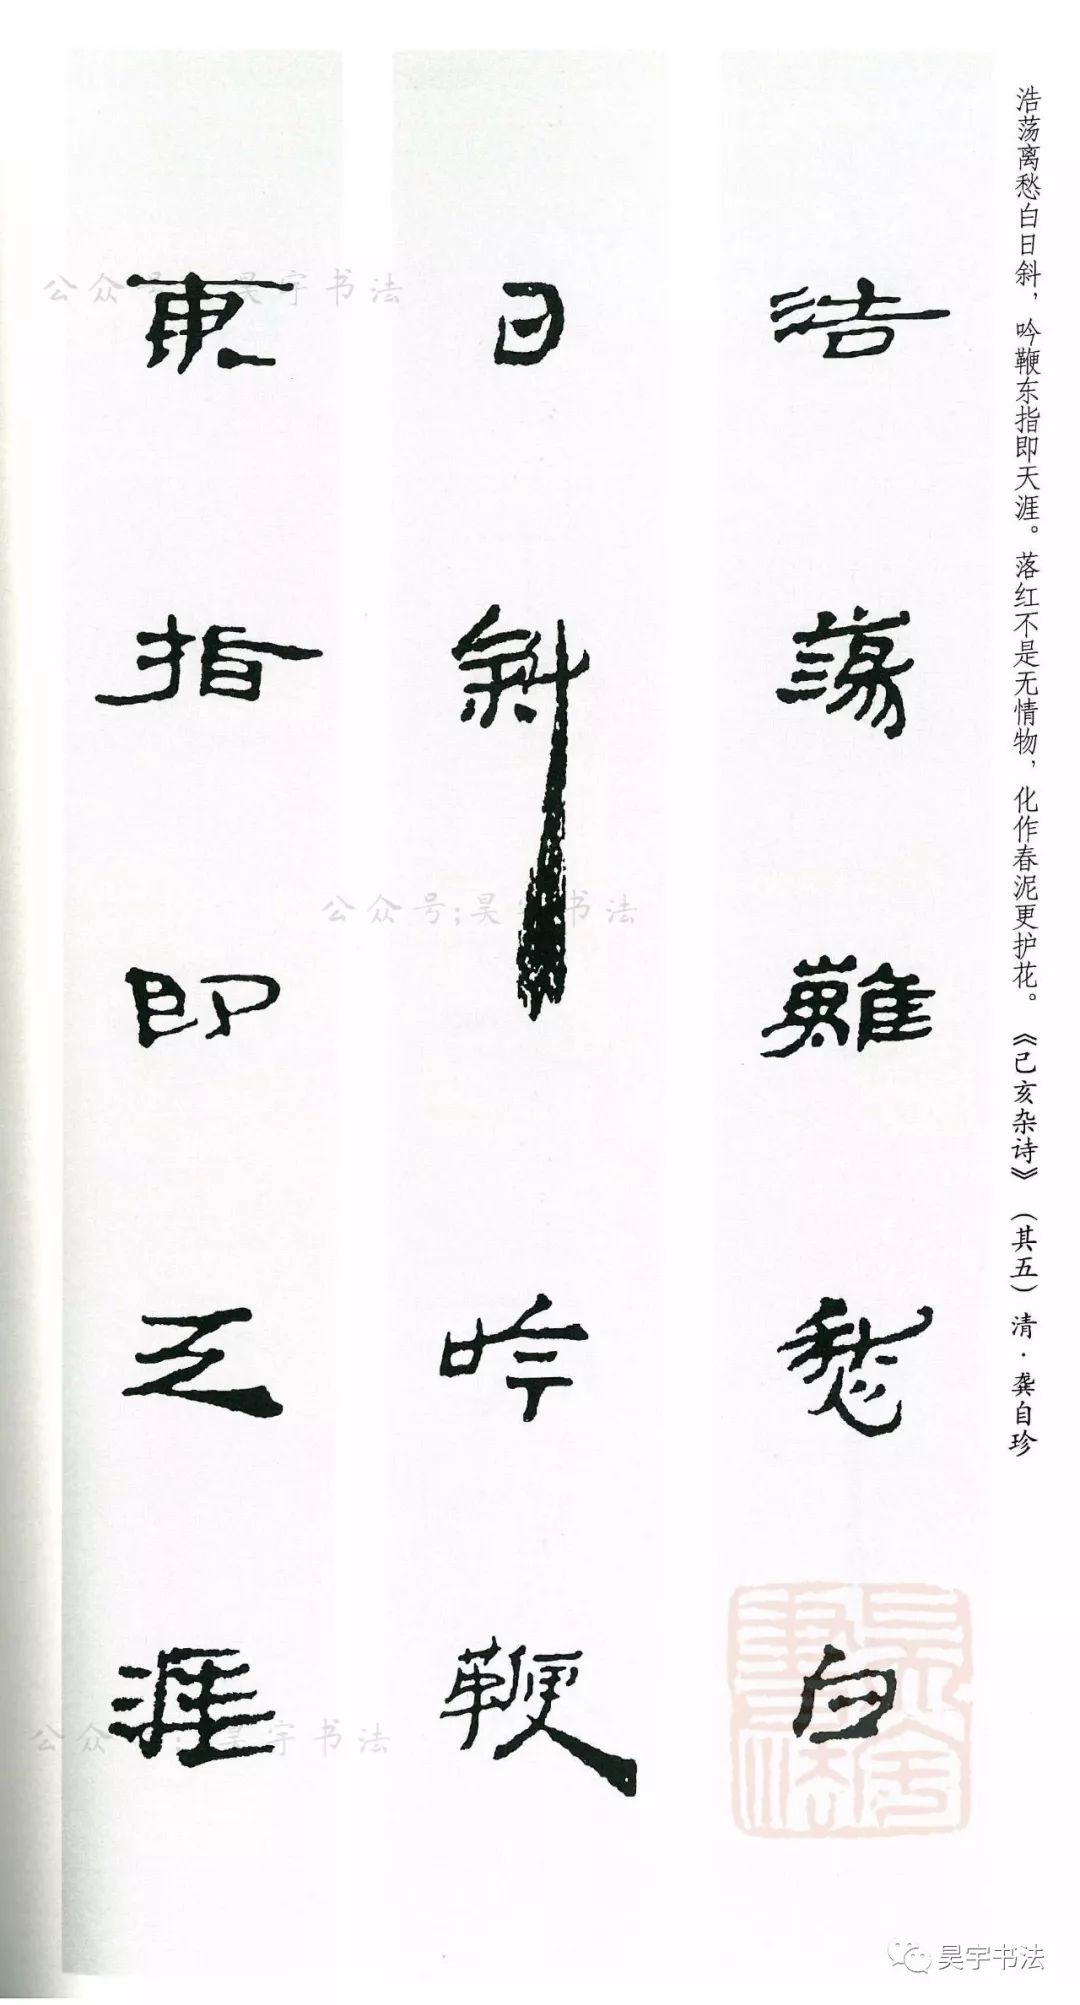 浩荡离愁白日斜，吟鞭东指即天涯。落红不是无情物，化作春泥更护花。《己亥杂诗》（其五）清·龚自珍
浩蕩離愁白
日斜吟鞭
東指即天涯
公众号;昊宇书法
公众号;昊宇书法
公众号;昊宇书法
昊宇書法
昊宇书法